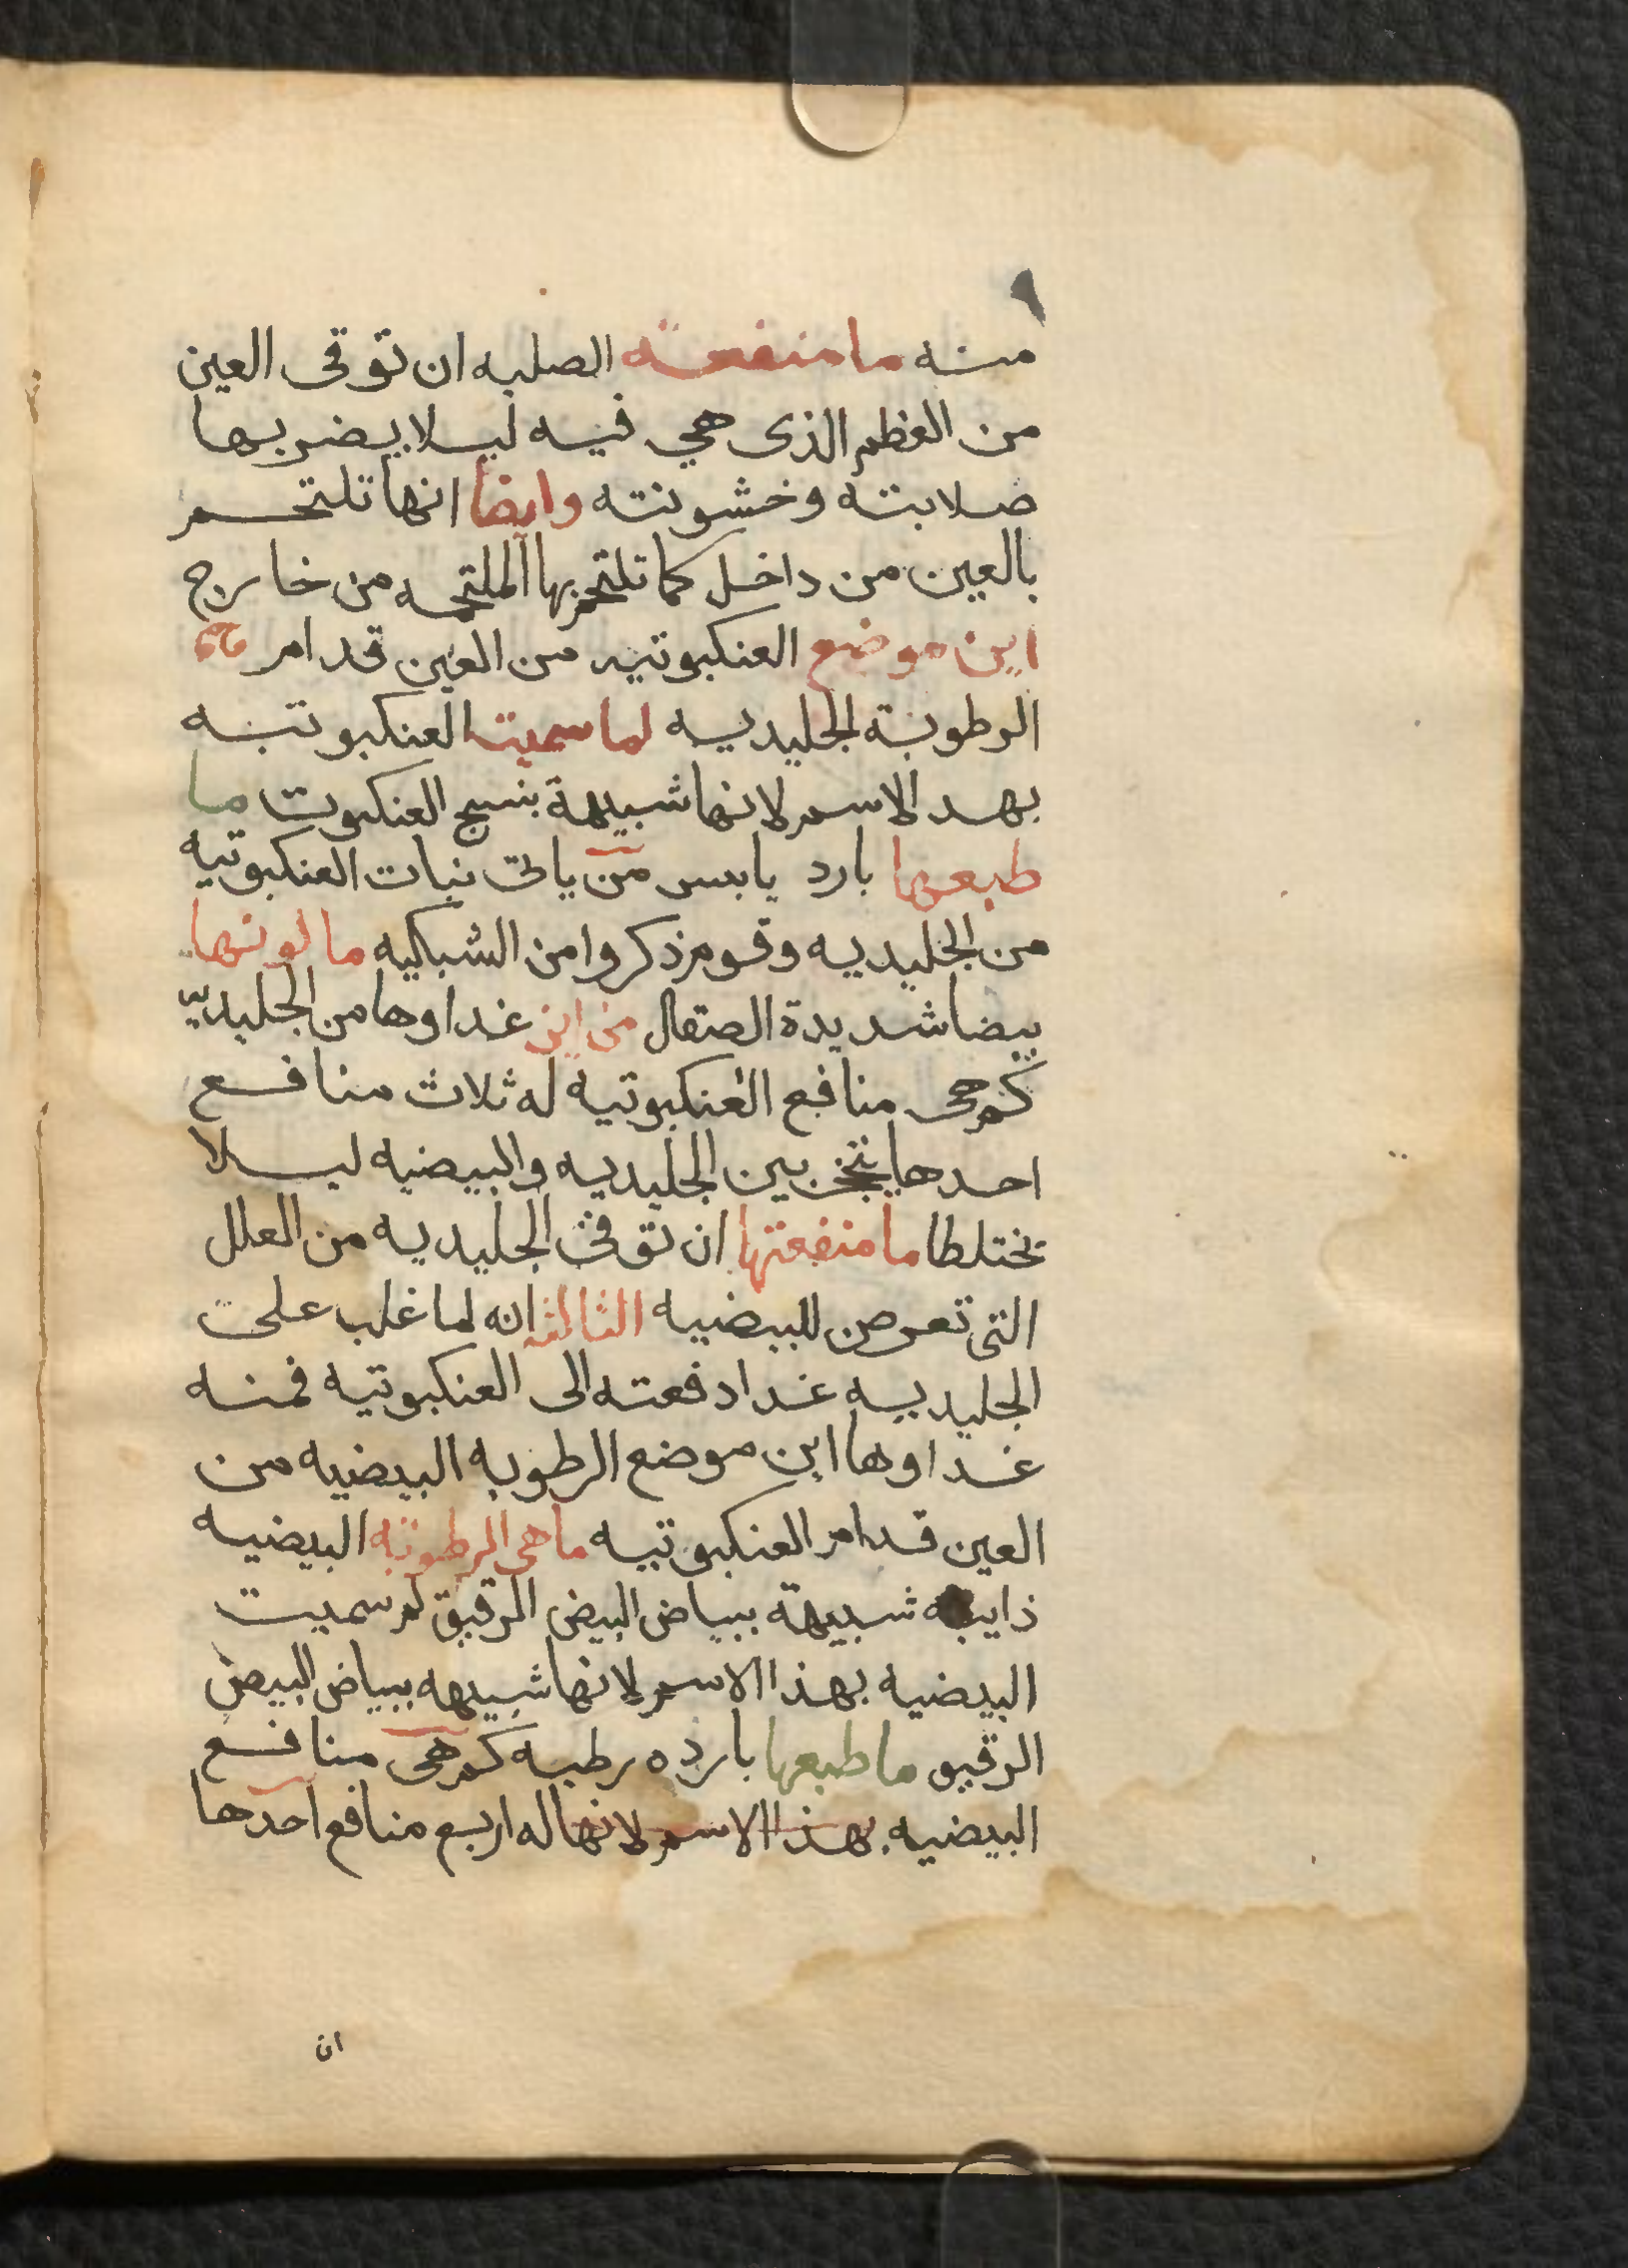 منه ما منفعة الصلبه ان توقى العين
من العظم الذى هي فيه ليلا يضر بها
صلابته وخشونته وايضا انها تلتحم
بالعين من داخل كما تلتحم بها الملتحمه من خارج
اين موضع العنكبوتيه من العين قدام
الرطوبة الجليديه لما سميت العنكبوتيه
بهد الاسم لانها شبيهة بنسج العنكبوت ما
طبعها بارد يابس من ياتى نبات العنكبوتيه
من الجليديه وقوم ذكروا من الشبكيه ما لونها
بيضا شديدة الصقال من اين غداوها من الجليديه
كم هى منافع العنكبوتيه له ثلاث منافع
احدها بين الجليديه والبيضيه ليلا
يختلطا ما منفعتها ان توقى الجليديه من العلل
التى تعرض للبيضيه الثالثه انه لما غلب على
الجليديه غدا دفعته الى العنكبوتيه فمنه
غداوها اين موضع الرطوبه البيضيه من
العين قدام العنكبوتيه ما هى الرطوبه البيضيه
ذايبه شبيهة ببياض البيض الرقيق لم سميت
البيضيه بهذا الاسم لانها شبيهه ببياض البيض
الرقيق ما طبعها بارده رطبه كم هى منافع
البيضيه بهذا الاسم لانها له اربع منافع احدها
ان